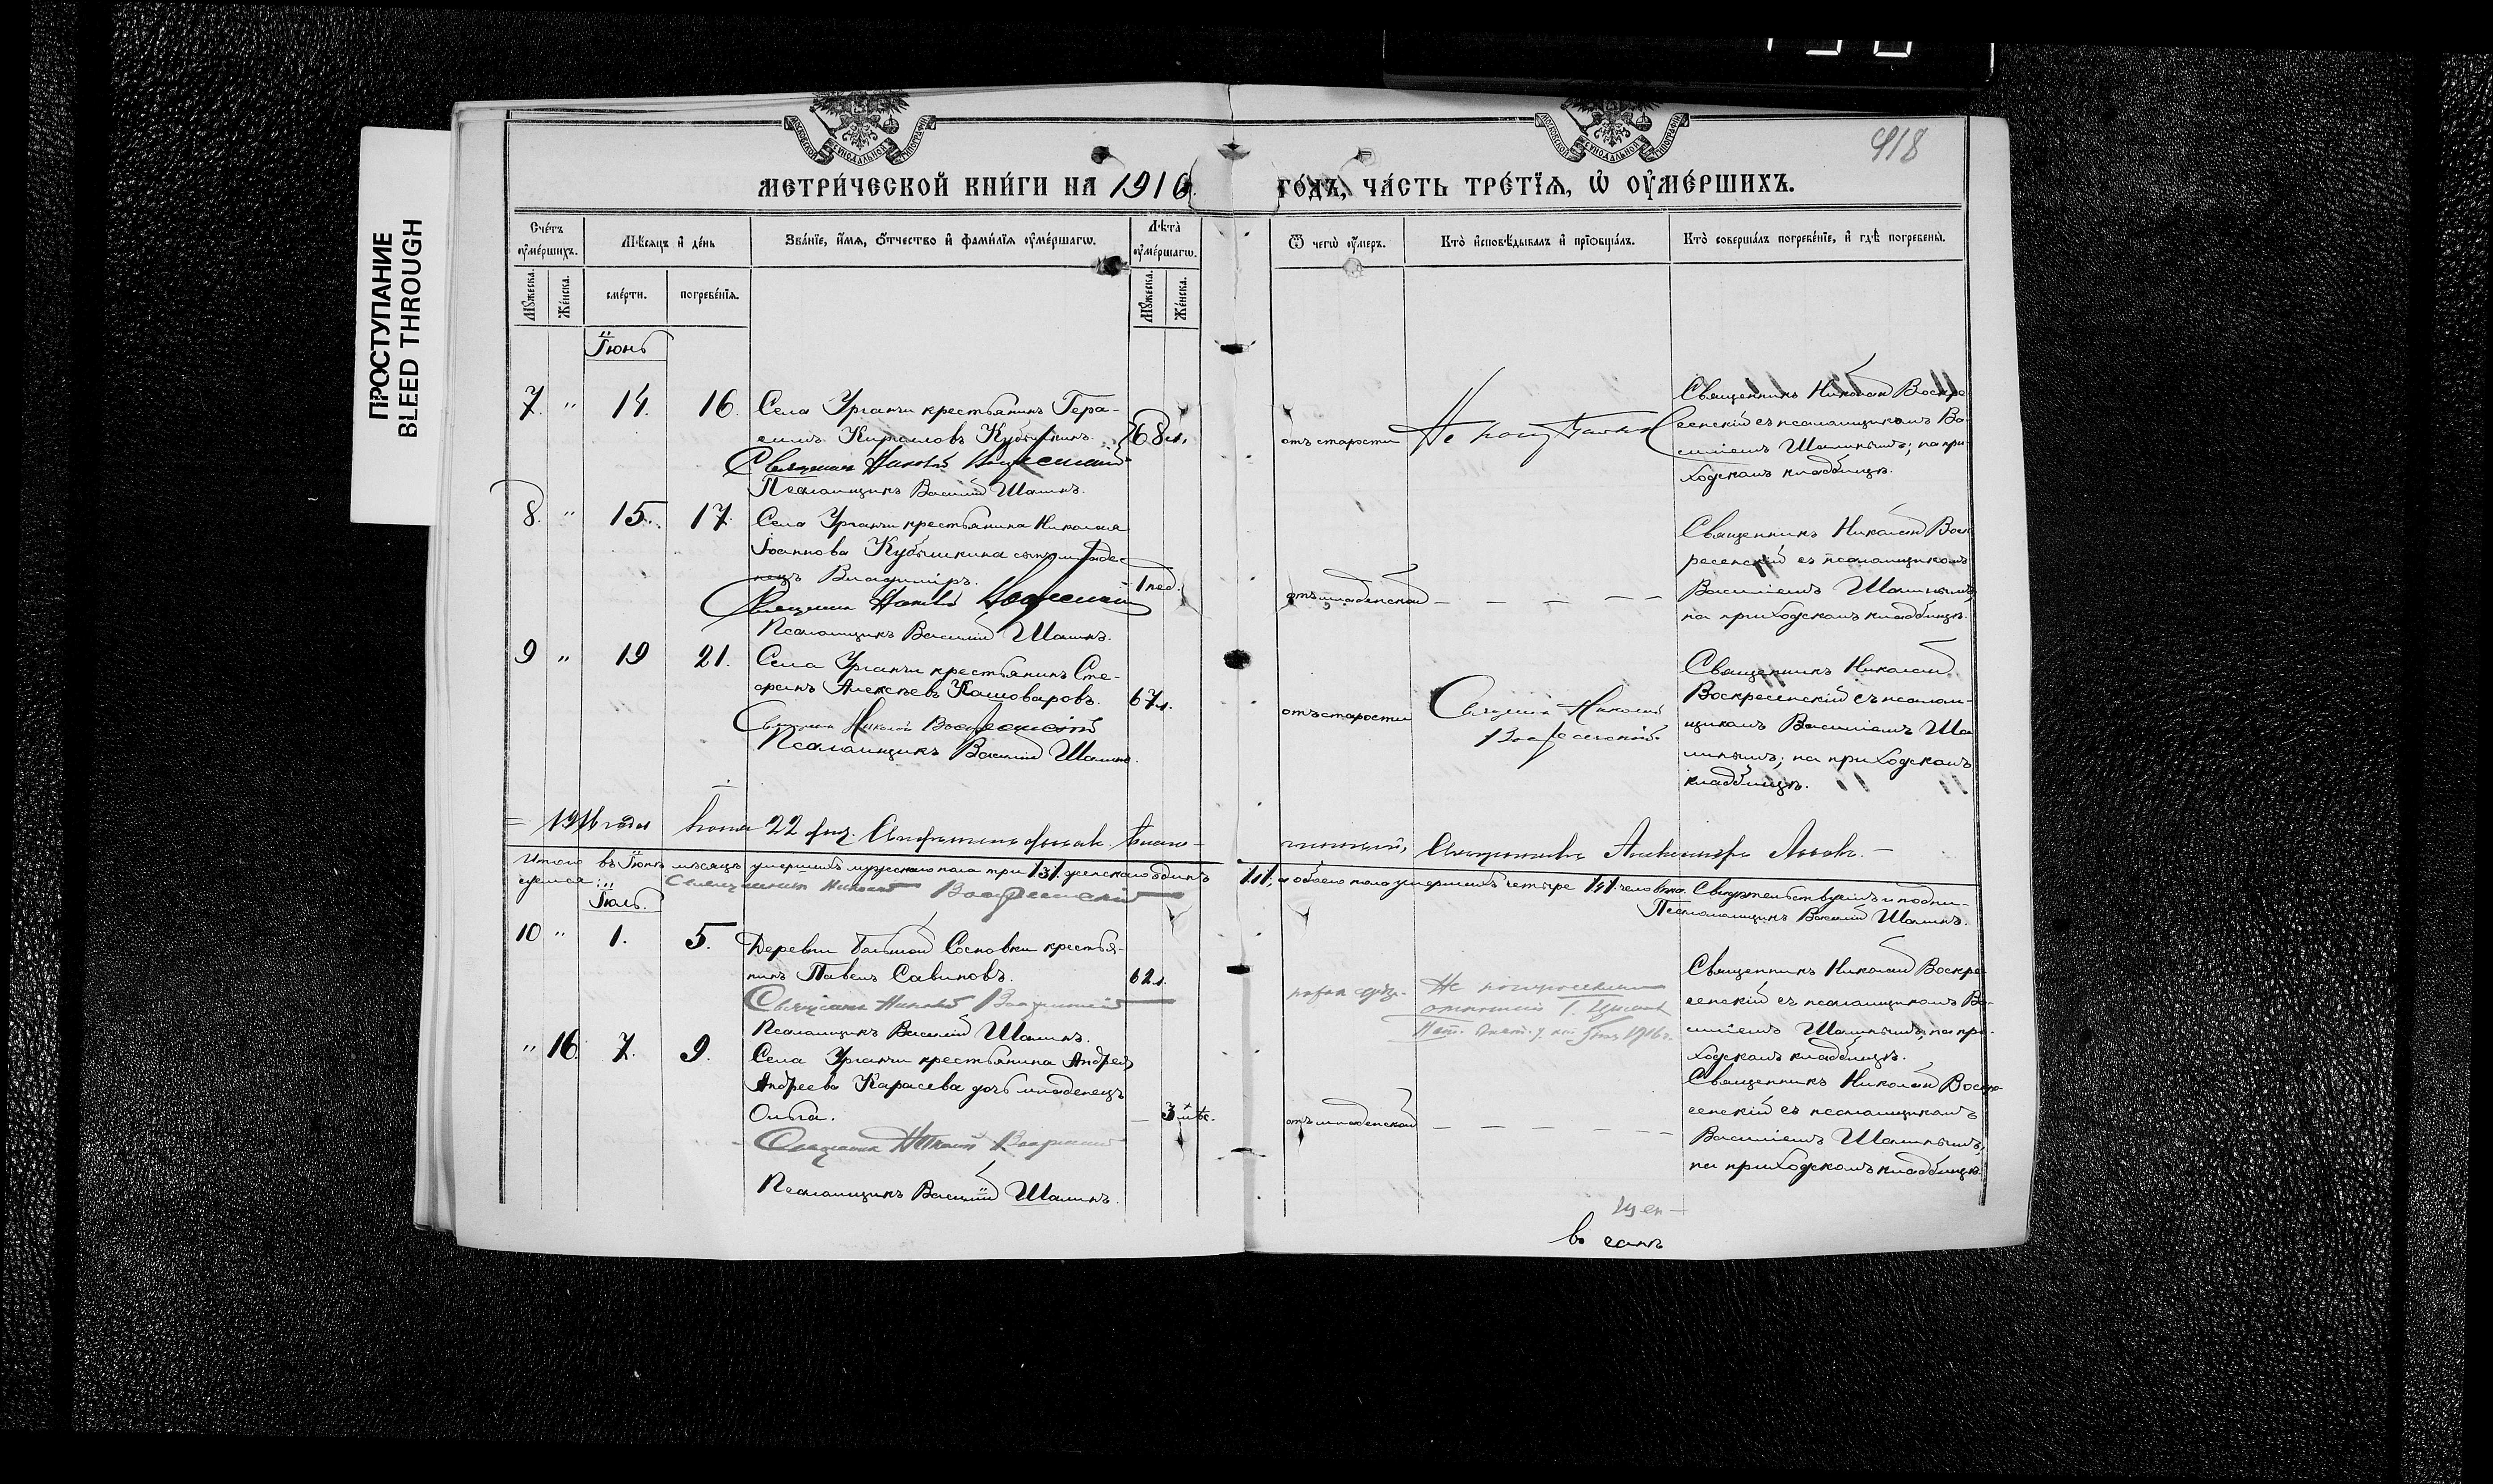 ПРОСТУПАНИЕ
BLEED THROUGH
918
МЕТРИ́ЧЕСКОЙ КНИ́ГИ НА 1916
ГО́ДЪ, ЧА́СТЬ ТРЕ́ТІѦ, Ѡ҆ ОУ҆МЕ́РШИХЪ.
Сче́тъ оу҆ме́ршихъ.
Мѣ́сяцъ и҆ де́нь
Зва́нїе, и҆́мѧ, ѻ҆́тчество и҆ фами́лїѧ оу҆ме́ршагѡ.
Лѣ́та оу҆ме́ршагѡ.
Ѿ чегѡ̀ оу҆́меръ.
Кто̀ и҆сповѣ́дывалъ и҆ прїѡбща́лъ.
Кто̀ соверша́лъ погребе́нїе, и҆ гдѣ̀ погребены̀.
Мꙋжеска.
Же́нска.
сме́рти.
погребе́нїѧ.
Мꙋжеска.
Же́нска.
Іюнь
7. " 14. 16. Села Урганчи крестьянинъ Гера-
симъ Кириловъ Кубышкинъ. 68 л.
Священникъ Николай Воскресенскій
Псаломщикъ Василій Шалинъ.
отъ старости
Священникъ Николай Воскре-
сенскій съ псаломщикомъ Ва-
силіемъ Шалинымъ; на при-
ходскомъ кладбищѣ.
8. " 15. 17. Села Урганчи крестьянина Николая
Іоаннова Кубышкина сынъ младе-
нецъ Владиміръ. 1 нед.
Священникъ Николай Воскресенскій
Псаломщикъ Василій Шалинъ.
отъ младенской
Священникъ Николай Воск-
ресенскій съ псаломщикомъ
Василіемъ Шалинымъ,
на приходскомъ кладбищѣ.
9 " 19 21. Села Урганчи крестьянинъ Сте-
фанъ Алексѣевъ Кашоваровъ. 67 л.
Священникъ Николай Воскресенскій
Псаломщикъ Василій Шалинъ.
отъ старости
Священникъ Николай
Воскресенскій
Священникъ Николай
Воскресенскій съ псалом-
щикомъ Василіемъ Ша-
линымъ; на приходскомъ
кладбищѣ.
1916 года 22
Итого въ Іюнѣ мѣсяцѣ умершихъ мужескаго пола три /3/. женскаго одинъ
/1/, а обоего пола умершихъ четыре /4/ человѣка. Свидѣтельствуемъ и подпи-
суемся: Священникъ Николай Воскресенскій
Псаломщикъ Василій Шалинъ.
Іюль.
10 " 1. 5. Деревни Большой Сосновки крестья-
нинъ Павелъ Савиновъ. 62 л.
Священникъ Николай Воскресенскій
Псаломщикъ Василій Шалинъ.
1916 г.
Священникъ Николай Воскре-
сенскій съ псаломщикомъ Ва-
силіемъ Шалинымъ; на при-
ходскомъ кладбищѣ.
" 16. 7. 9. Села Урганчи крестьянина Андрея
Андреева Карасева дочь младенецъ
Ольга. — 3 мѣс.
Священникъ Николай Воскресенскій
Псаломщикъ Василій Шалинъ.
отъ младенской
Священникъ Николай Воскре-
сенскій съ псаломщикомъ
Василіемъ Шалинымъ,
на приходскомъ кладбищѣ.